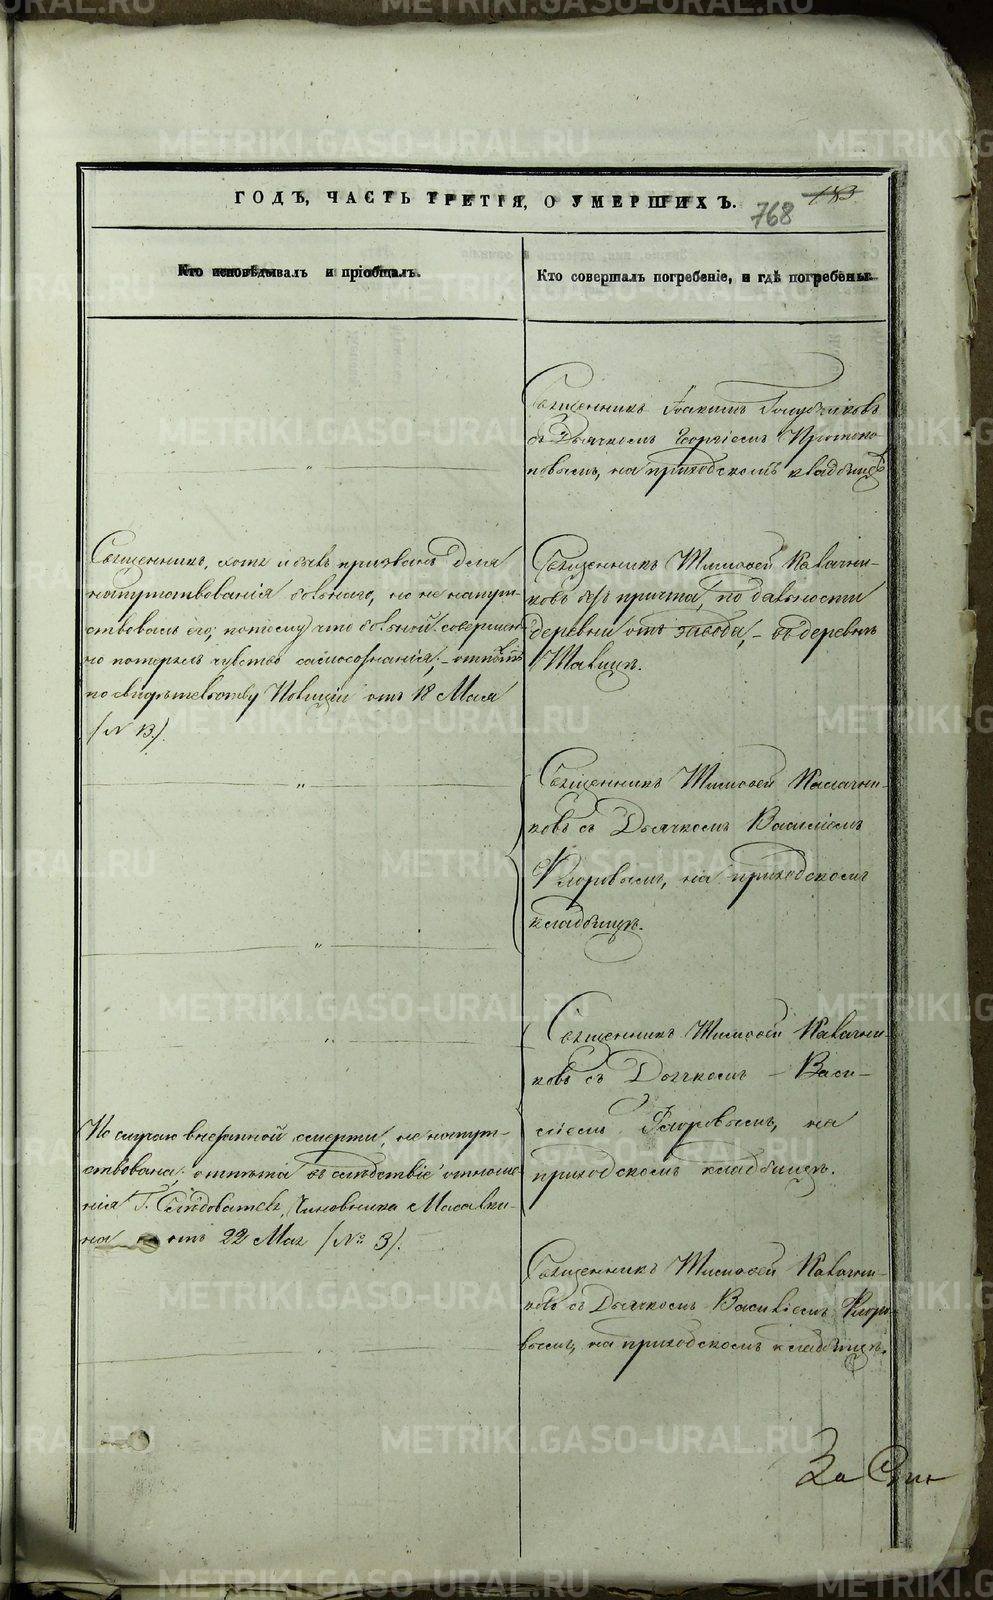 ГОДЪ, ЧАСТЬ ТРЕТІЯ, О УМЕРШИХЪ.
768
183
Кто исповѣдывалъ и пріобщалъ.
Кто совершалъ погребеніе, и гдѣ погребены.
Священникъ Іоакимъ
съ Дьячкомъ Георгіемъ Протопо-
повымъ, на приходскомъ кладбищѣ
Священникъ, хотя и былъ призванъ для
напутствованія больнаго, но не напут-
ствовалъ его, потому что больной совершен-
но потерялъ чувство самосознанія; – отпѣтъ
по свидѣтельству Полиціи отъ 18 Мая
(№ 13.)
Священникъ Тимофей Калачни-
ковъ безъ причта, по дальности
деревни отъ завода, – въ деревнѣ
Талицѣ.
Священникъ Тимофей Калачни-
ковъ съ Дьячкомъ Василіемъ
Флоровымъ, на приходскомъ
кладбищѣ.
Священникъ Тимофей Калачни-
ковъ съ Дьячкомъ – Васи-
ліемъ Флоровымъ, на
приходскомъ кладбищѣ.
По случаю внезапной смерти, не напут-
ствована; отпѣта въ слѣдствіе отноше-
нія Г. Чиновника
на отъ 22 Мая (№ 3).
Священникъ Тимофей Калачни-
ковъ съ Дьячкомъ Василіемъ Флоро-
вымъ, на приходскомъ кладбищѣ.
За
METRIKI.GASO-URAL.RU